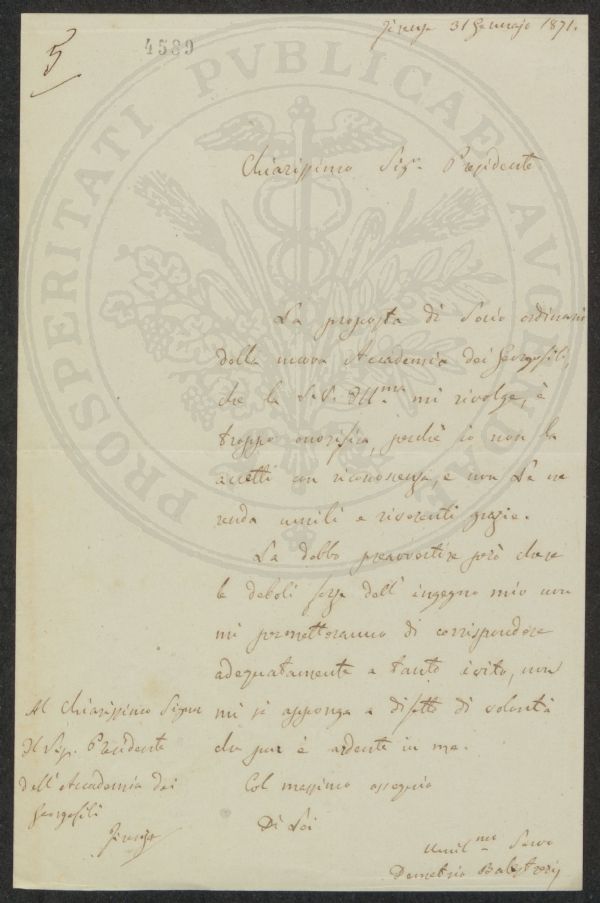 5
4589
Firenze 31 Gennajo 1871.
PROSPERITATI PVBLICAE AVGENDAE
Chiarissimo Sigr. Presidente
La proposta di Socio ordinario
della nuova Accademia dei Georgofili,
che la S.V. Ill.ma mi rivolge, è
troppo onorifica, perchè io non la
accetti con riconoscenza, e non Le ne
renda umili e riverenti grazie.
La debbo preavvertire però che se
le deboli forze dell' ingegno mio non
mi permetteranno di corrispondere
adeguatamente a tanto invito, non
mi si apponga a difetto di volontà
che pur è ardente in me.
Col massimo ossequio
Di Lei
Umil.mo Servo
Demetrio
Al Chiarissimo Signor
Il Sig. Presidente
dell' Accademia dei
Georgofili
Firenze